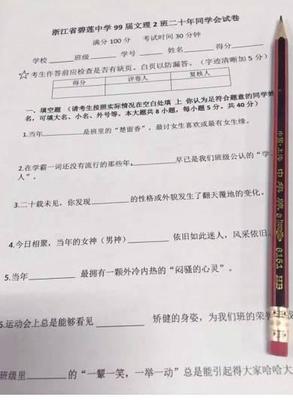 浙江省碧莲中学99届文理2班二十年同学会试卷
满分100分 考试时间30分钟
学校 班级 姓名
☆考生作答前应检查是否有缺页。白页以防漏答。(字迹清晰加5分)
得分 评卷人 复核人
一、填空题(请考生按照实际情况在空白处填上你认为足符合题意的同学姓名,可填大名、小名、外号等。本大题共8小题,每小题5分,共40分)
1.当年 是班里的“楚留香”,最讨女生喜欢或最有女生缘。
2.在学霸一词还没有流行的那些年, 早已是我们班级公认的“学
人”。
3.二十载未见,你发现 的性格或外貌发生了翻天覆地的变化。
4.今日相聚,当年的女神(男神) 依旧如此迷人,风采依旧。
5.当年 最拥有一颗外冷内热的“闷骚的心灵”。
6.运动会上总是能够看见 矫健的身姿,为我们班的荣
班级里 的“一颦一笑,一举一动”总是能引起得大家哈哈大
6161 HB